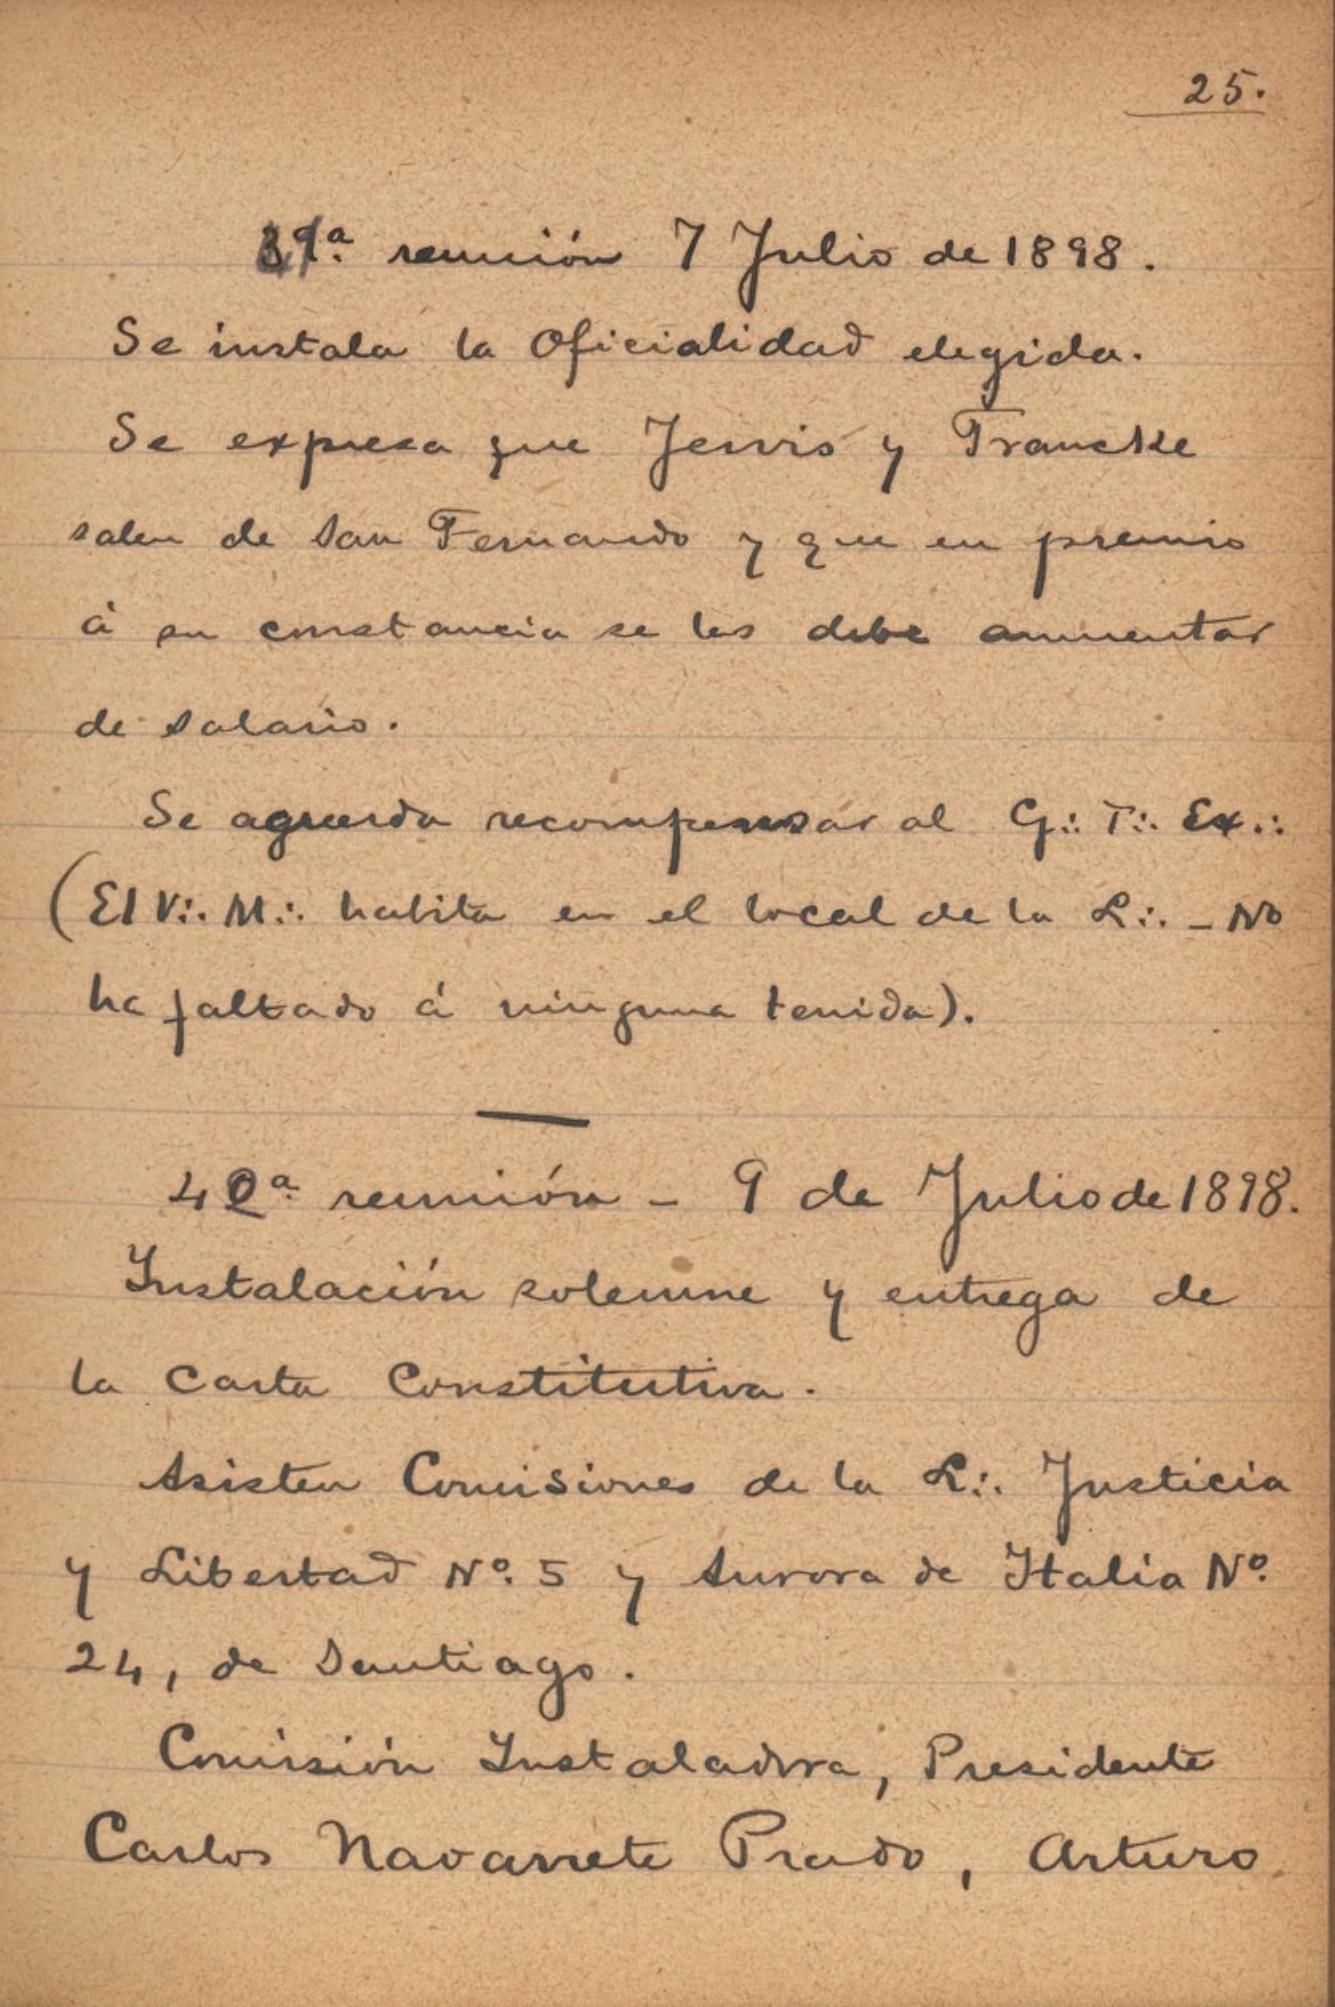 25.
39ª. reunión 7 Julio de 1898.
Se instala la Oficialidad elegida.
Se expresa que Jervis y Francke
salen de San Fernando y que en premio
á su constancia se les debe aumentar
de salario.
Se acuerda recompensar al G∴ T∴ Ex∴
(El V∴ M∴ habita en el local de la L∴ - No
ha faltado á ninguna tenida).
40ª. reunión - 9 de Julio de 1898.
Instalación solemne y entrega de
la Carta Constitutiva.
Asisten Comisiones de la L∴ Justicia
y Libertad Nº. 5 y Aurora de Italia Nº.
24, de Santiago.
Comisión Instaladora, Presidente
Carlos Navarrete Prado, Arturo